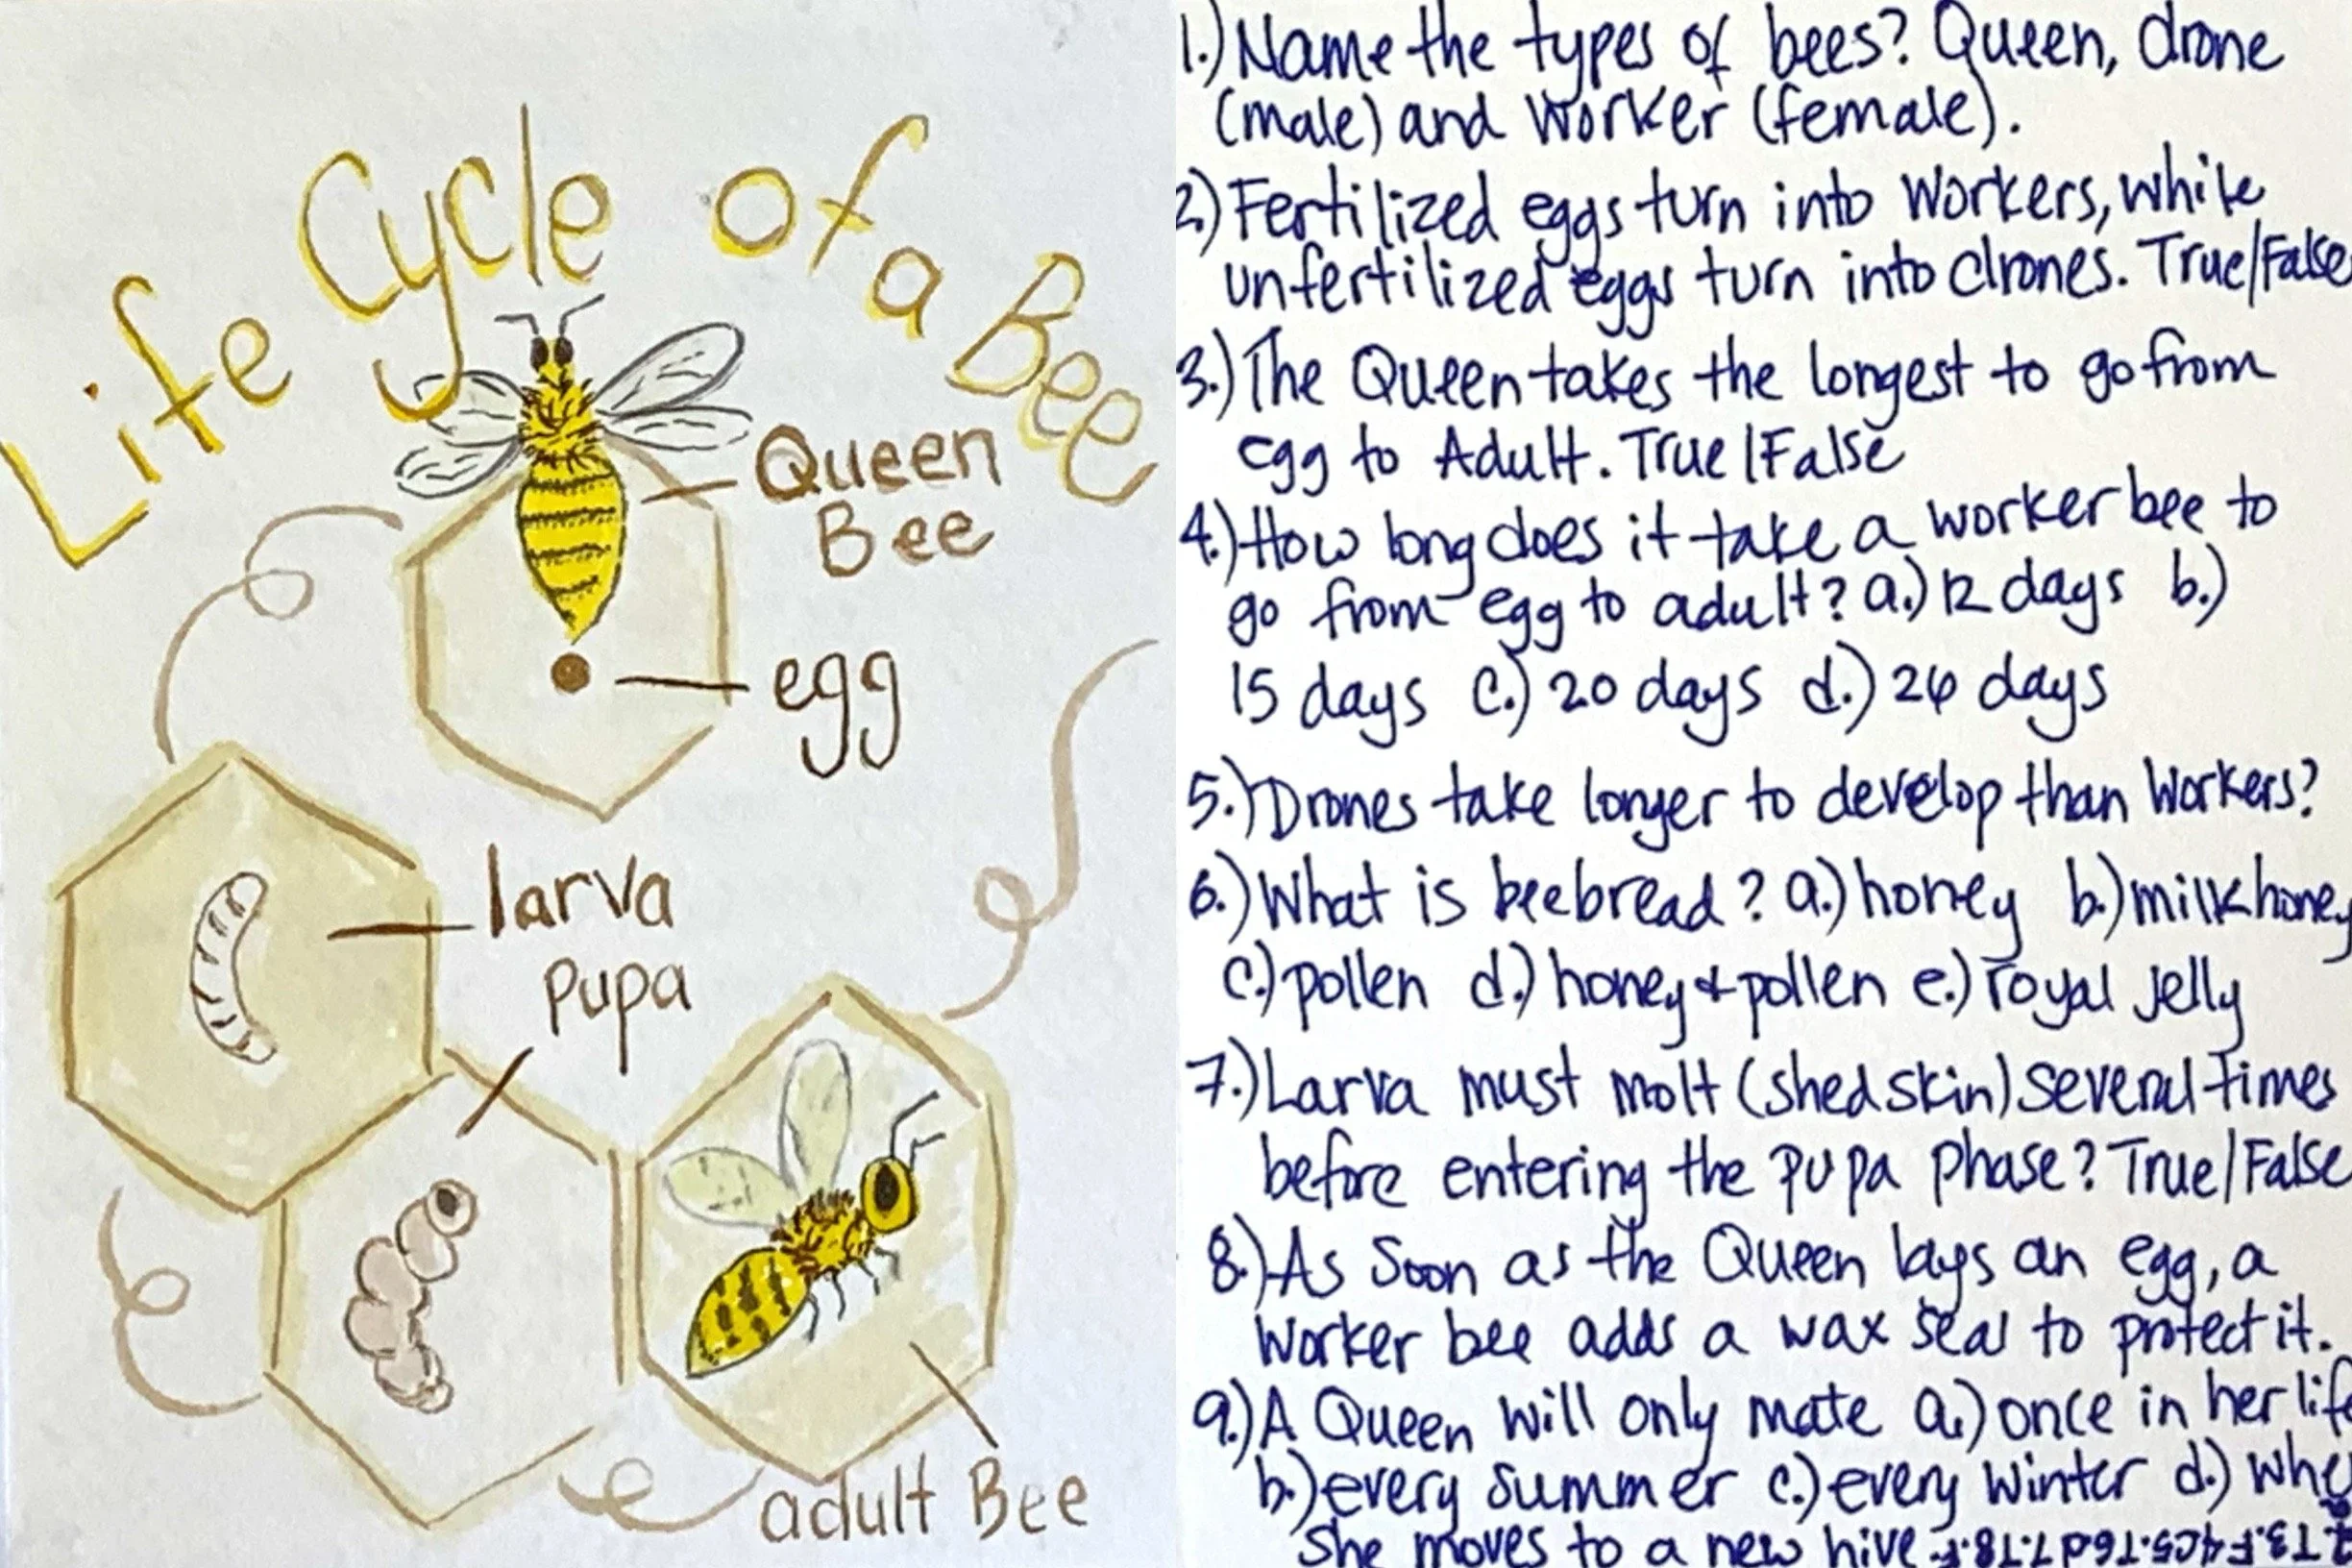 Life Cycle of a Bee
Queen
Bee
egg
larva
pupa
adult Bee
1.) Name the types of bees? Queen, drone
(male) and Worker (female).
2) Fertilized eggs turn into Workers, while
unfertilized eggs turn into drones. True/False
3.) The Queen takes the longest to go from
egg to Adult. True/False
4.) How long does it take a worker bee to
go from egg to adult? a.) 12 days b.)
15 days c.) 20 days d.) 26 days
5.) Drones take longer to develop than Workers?
6.) What is beebread? a.) honey b.) milk honey
c.) pollen d.) honey + pollen e.) royal jelly
7.) Larva must molt (shed skin) several times
before entering the pupa phase? True/False
8.) As soon as the Queen lays an egg, a
worker bee adds a wax seal to protect it.
9.) A Queen will only mate a.) once in her life
b.) every summer c.) every winter d.)
She moves to a new hive
T 3.F 4c 5.T 6d 7.T 8.F